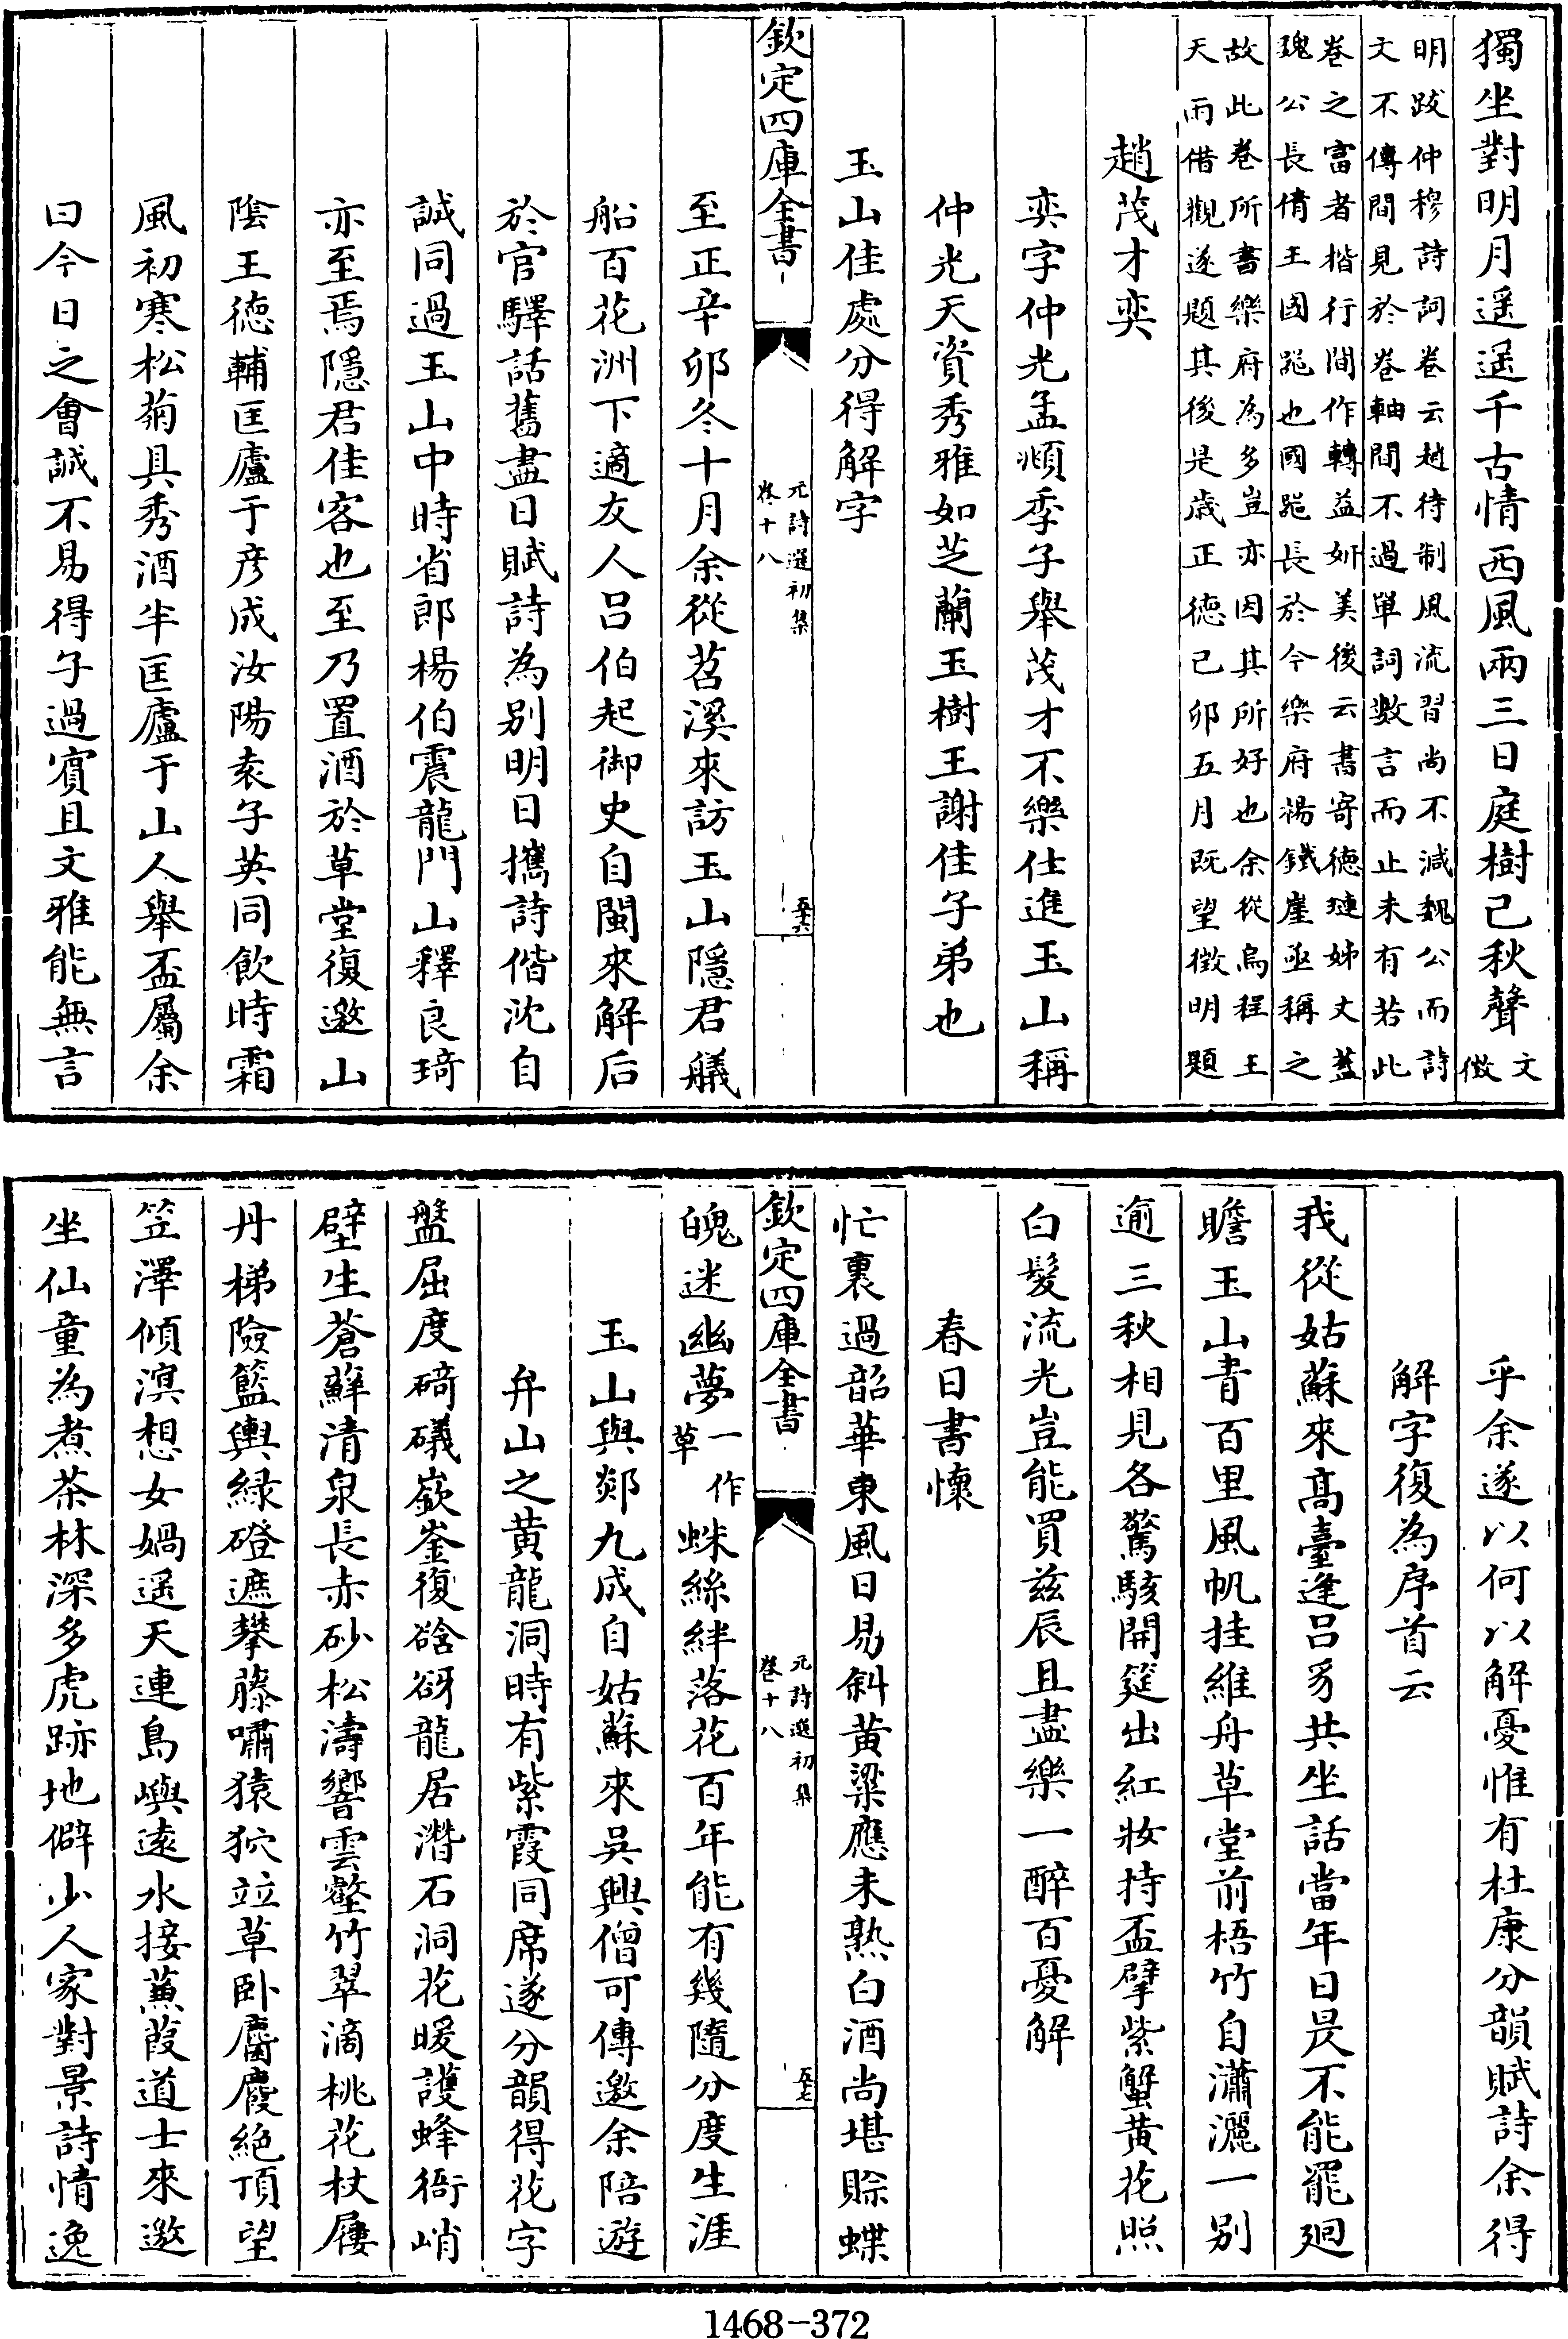 獨坐對明月遥遥千古情西風兩三日庭樹已秋聲文徴
明跋仲穆詩詞卷云趙待制風流習尚不減魏公而詩
文不傳間見於卷軸間不過單詞數言而止未有若此
卷之富者楷行間作轉益妍美後云書寄德璉姊丈蓋
魏公長倩王國器也國器長於今樂府楊鐵崖亟稱之
故此卷所書樂府為多豈亦因其所好也余從烏程王
天雨借觀遂題其後是歳正德己卯五月既望徴明題
趙茂才奕
奕字仲光孟頫季子舉茂才不樂仕進玉山稱
仲光天資秀雅如芝蘭玉樹王謝佳子弟也
玉山佳處分得解字
欽定四庫全書
元詩選初集
卷十八
五十六
至正辛卯冬十月余從苕溪來訪玉山隱君艤
船百花洲下適友人吕伯起御史自閩來解后
於官驛話舊盡日賦詩為别明日攜詩偕沈自
誠同過玉山中時省郎楊伯震龍門山釋良琦
亦至焉隱君佳客也至乃置酒於草堂復邀山
陰王徳輔匡廬于彦成汝陽袁子英同飲時霜
風初寒松菊具秀酒半匡廬于山人舉盃屬余
曰今日之會誠不易得子過賓且文雅能無言
乎余遂以何以解憂惟有杜康分韻賦詩余得
解字復為序首云
我從姑蘇來髙臺逢吕豸共坐話當年日昃不能罷廻
瞻玉山青百里風帆挂維舟草堂前梧竹自瀟灑一别
逾三秋相見各驚駭開筵出紅妝持盃擘紫蟹黄花照
白髮流光豈能買兹辰且盡樂一醉百憂解
春日書懷
忙裏過韶華東風日易斜黄粱應未熟白酒尚堪賒蝶
欽定四庫全書
元詩選初集
卷十八
五十七
魄迷幽夢一作草蛛絲絆落花百年能有幾隨分度生涯
玉山與郯九成自姑蘇來吳興僧可傳邀余陪遊
弁山之黄龍洞時有紫霞同席遂分韻得花字
盤屈度碕礒嶔崟復硲谺龍居潛石洞花暖護蜂衙峭
壁生蒼蘚清泉長赤砂松濤響雲壑竹翠滴桃花杖屨
丹梯險籃輿緑磴遮攀藤嘯猿狖竝草卧麕麚絶頂望
笠澤傾溟想女媧遥天連島嶼逺水接蒹葭道士來邀
坐仙童為煮茶林深多虎跡地僻少人家對景詩情逸
1468-372